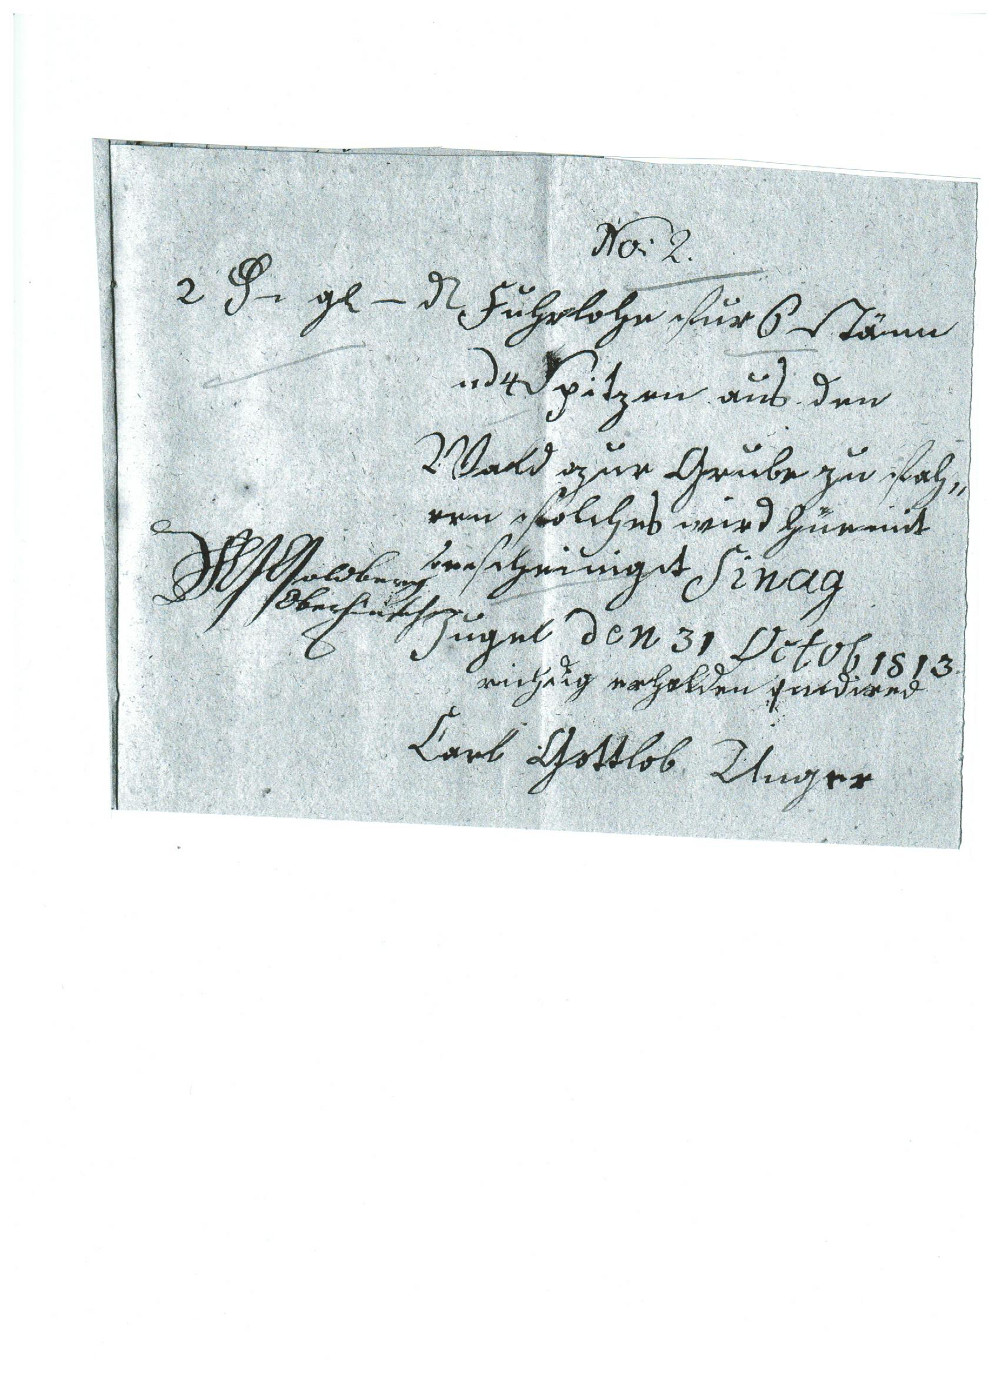 No: 2.
2 – gl – d Fuhrlohn fur 6 Stämm
und 4 Spitzen aus den
Wald zur Grube zu fah„
ren solches wird hiermit
bescheiniget Sinag
Jugel den 31 Octob 1813.
richdig erhalden quidired
Carl Gottlob Unger